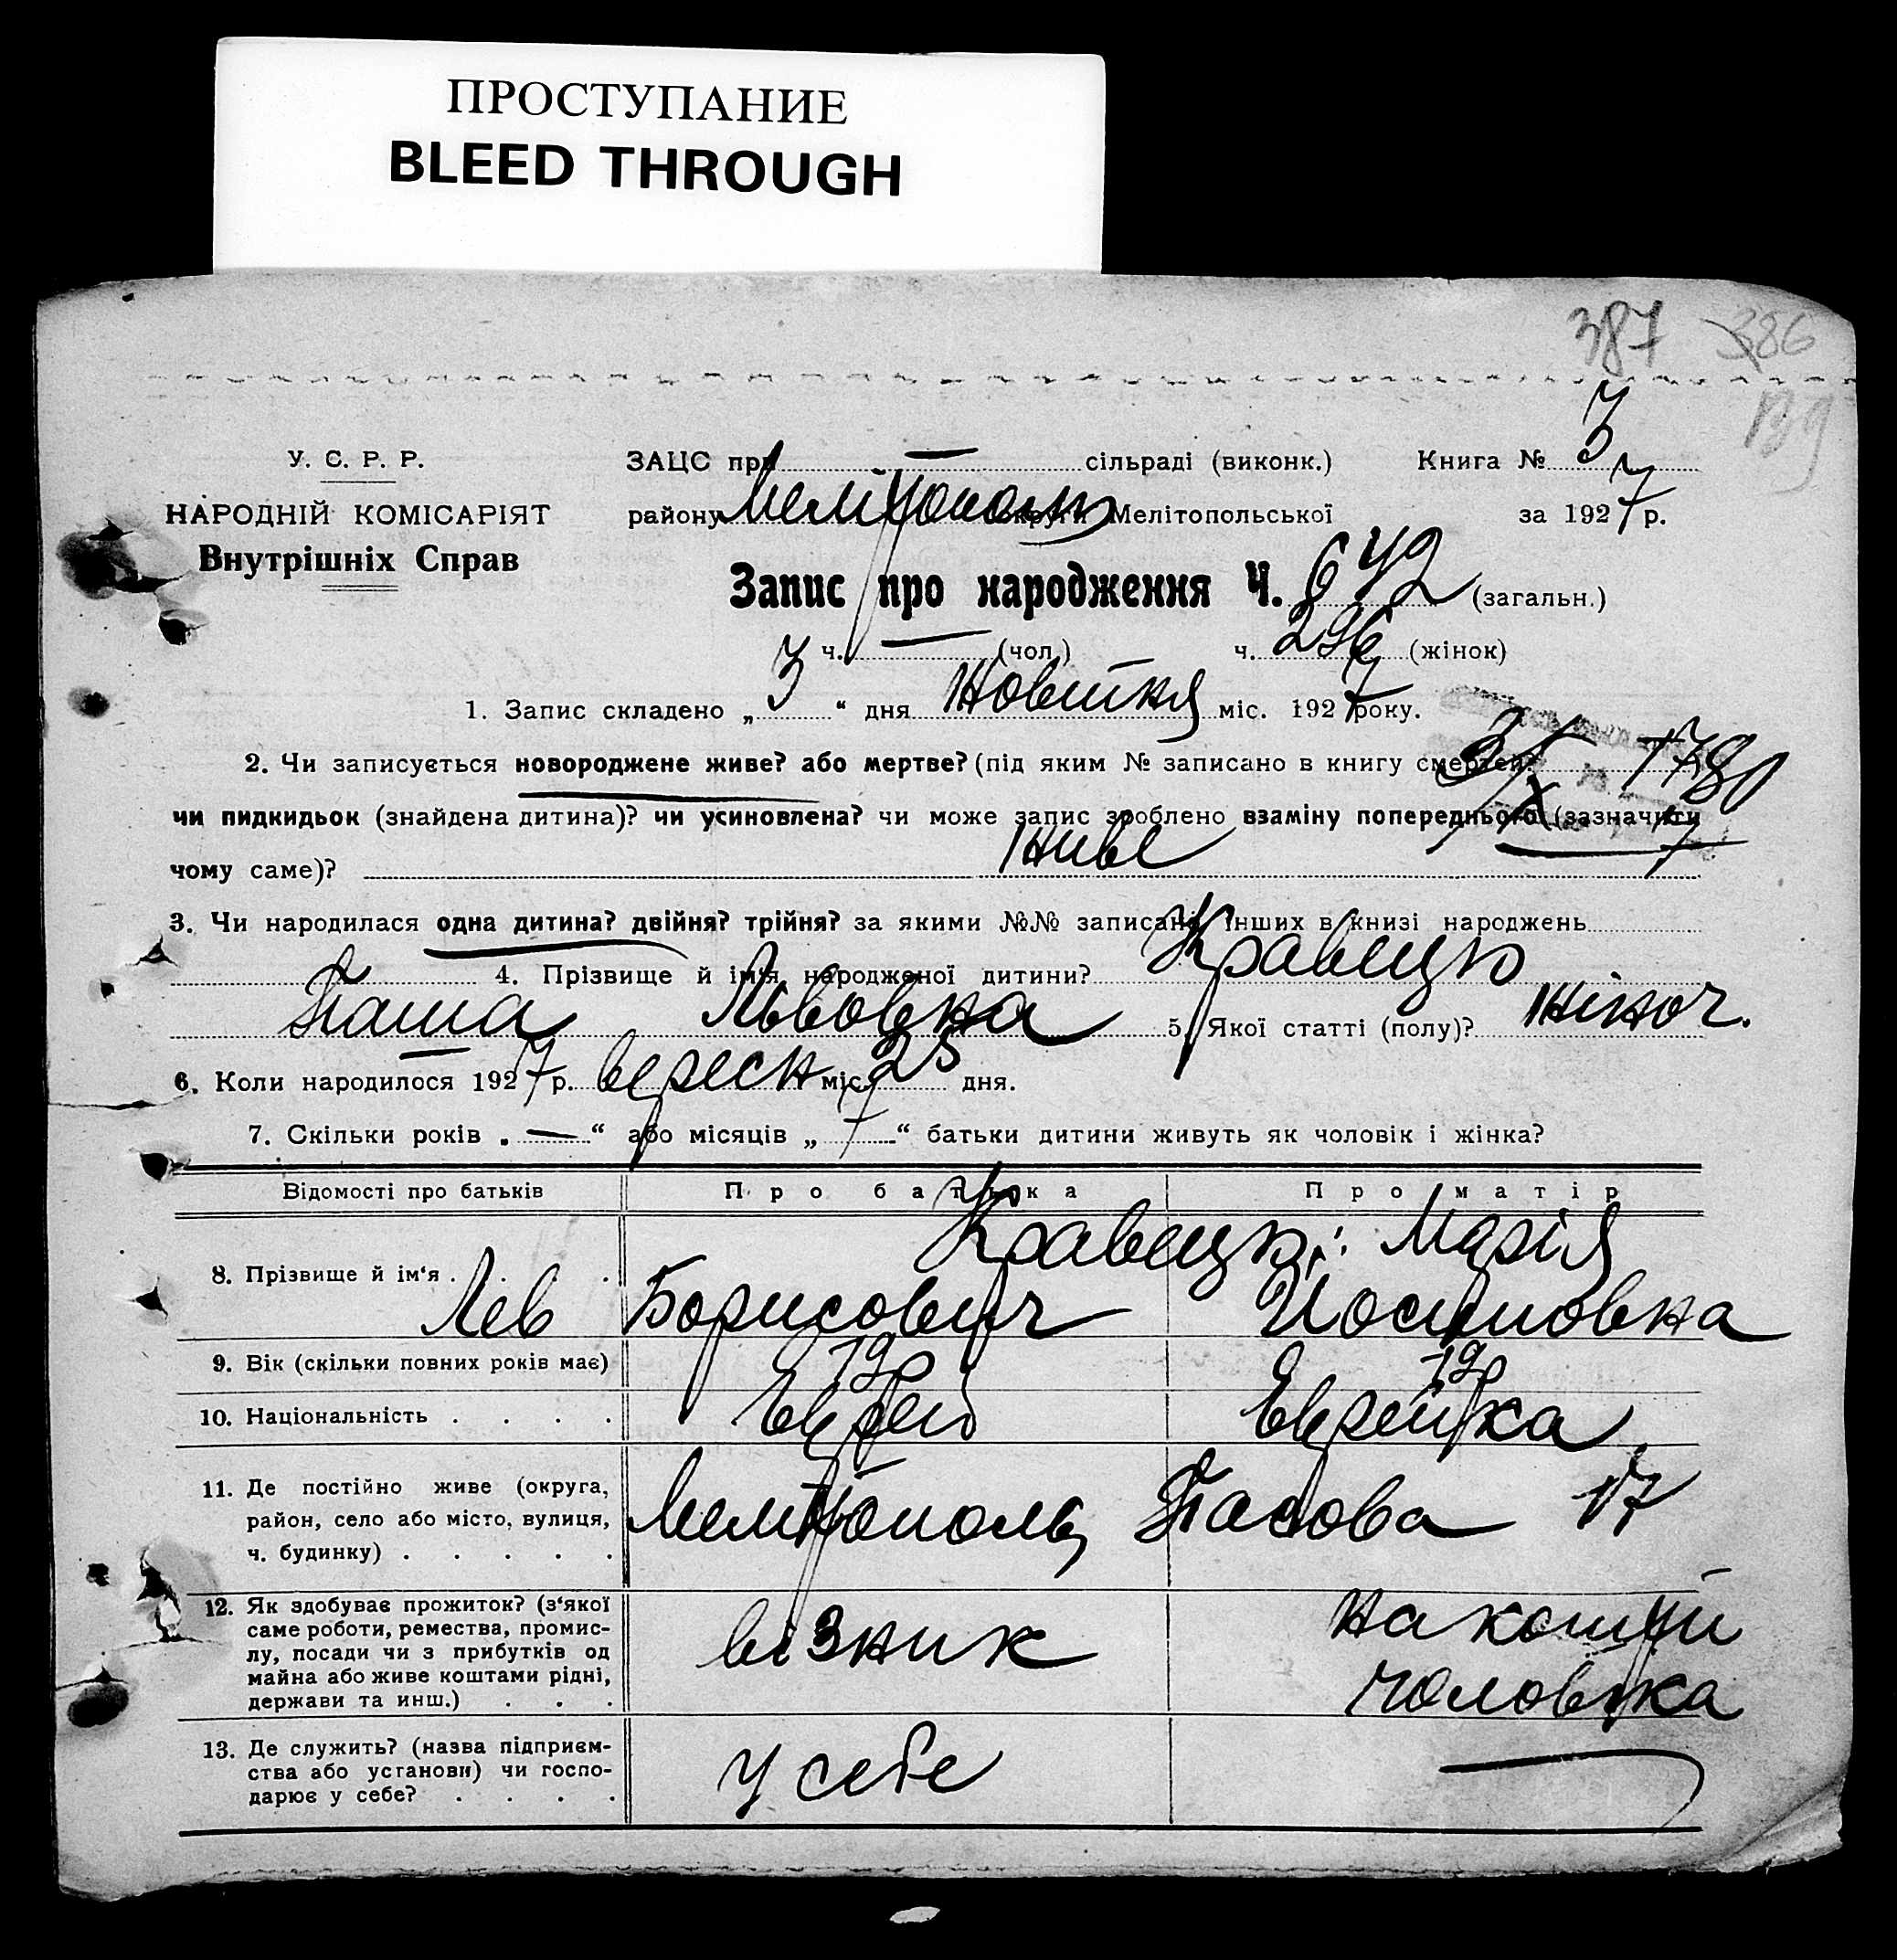 ПРОСТУПАНИЕ
BLEED THROUGH
387 386
139
У. С. Р. Р.
НАРОДНІЙ КОМІСАРІЯТ
Внутрішніх Справ
ЗАЦС при — сільраді (виконк.) Книга № 3
району Мелітополь округи Мелітопольської за 1927 р.
Запис про народження Ч. 642 (загальн.)
ч. — (чол.) ч. 296 (жінок)
1. Запис складено „ 3 “ дня Жовтня міс. 1927 року.
2. Чи записується новороджене живе? або мертве? (під яким № записано в книгу смертей?
1780
чи пидкидьок (знайдена дитина)? чи усиновлена? чи може запис зроблено взаміну попереднього (зазначити
чому саме)? живе
3. Чи народилася одна дитина? двійня? трійня? за якими №№ записані інших в книзі народжень
4. Прізвище й ім'я народженої дитини? Кравецьк
Паша Львовна 5. Якої статті (полу)? жіноч.
6. Коли народилося 1927 р. вересн міс. 25 дня.
7. Скільки років „ — “ або місяців „ 7 “ батьки дитини живуть як чоловік і жінка?
Відомості про батьків Про батька Про матір
8. Прізвище й ім'я . . . Кравецькі: Марія
Лев Борисович Йосиповна
9. Вік (скільки повних років має) 19р 19р
10. Національність . . . . Еврей Еврейка
11. Де постійно живе (округа,
район, село або місто, вулиця,
ч. будинку) . . . . .
Мелітополь Пасова 17
12. Як здобуває прожиток? (з'якої
саме роботи, ремества, промис-
лу, посади чи з прибутків од
майна або живе коштами рідні,
держави та инш.) . . .
візник
на кошти
чоловіка
13. Де служить? (назва підприєм-
ства або установи) чи госпо-
дарює у себе? . . . .
у себе —